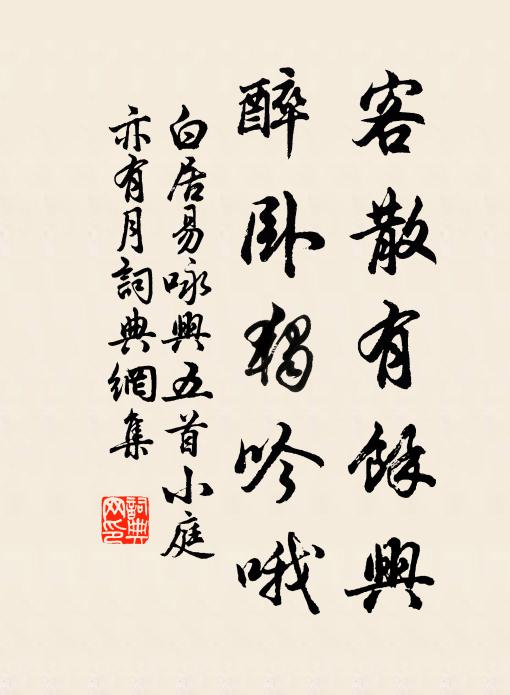 客散有餘興
醉卧獨吟哦
白居易咏興五首小庭
亦有月詞典網集
詞典
网印